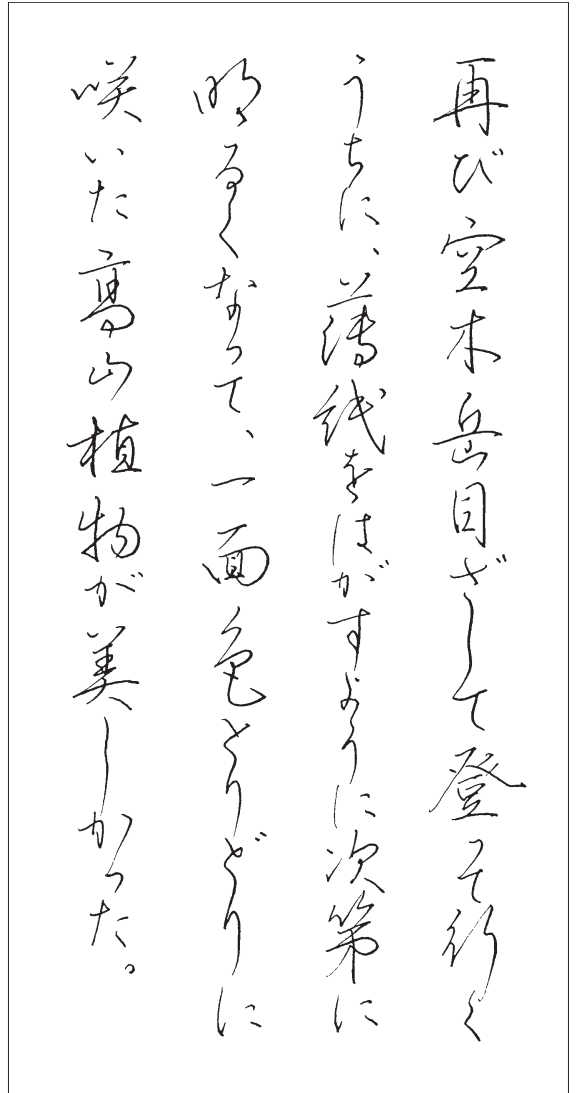 再び空木岳目ざして登って行く
うちに、薄紙をはがすように次第に
明るくなって、一面色とりどりに
咲いた高山植物が美しかった。